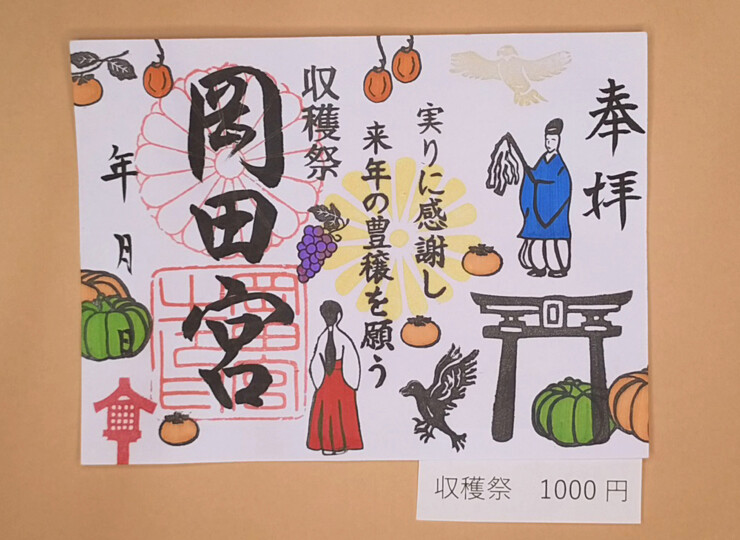 奉拝
実りに感謝し
来年の豊穣を願う
収穫祭
岡田宮
年月日
収穫祭 1000円